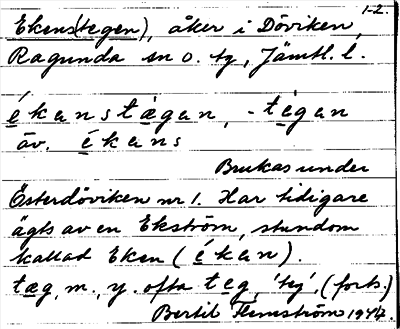 1-2.
Ekens(tegen), åker i Döviken,
Ragunda sn o. tg, Jämtl. l.
ékanstægan, -tégan
äv. ékans
Brukas under
Österdöviken nr 1. Har tidigare
ägts av en Ekström, stundom
kallad Eken (ékán).
tæg, m., y. ofta teg, 'teg', (forts.)
Bertil Flemström 1947.